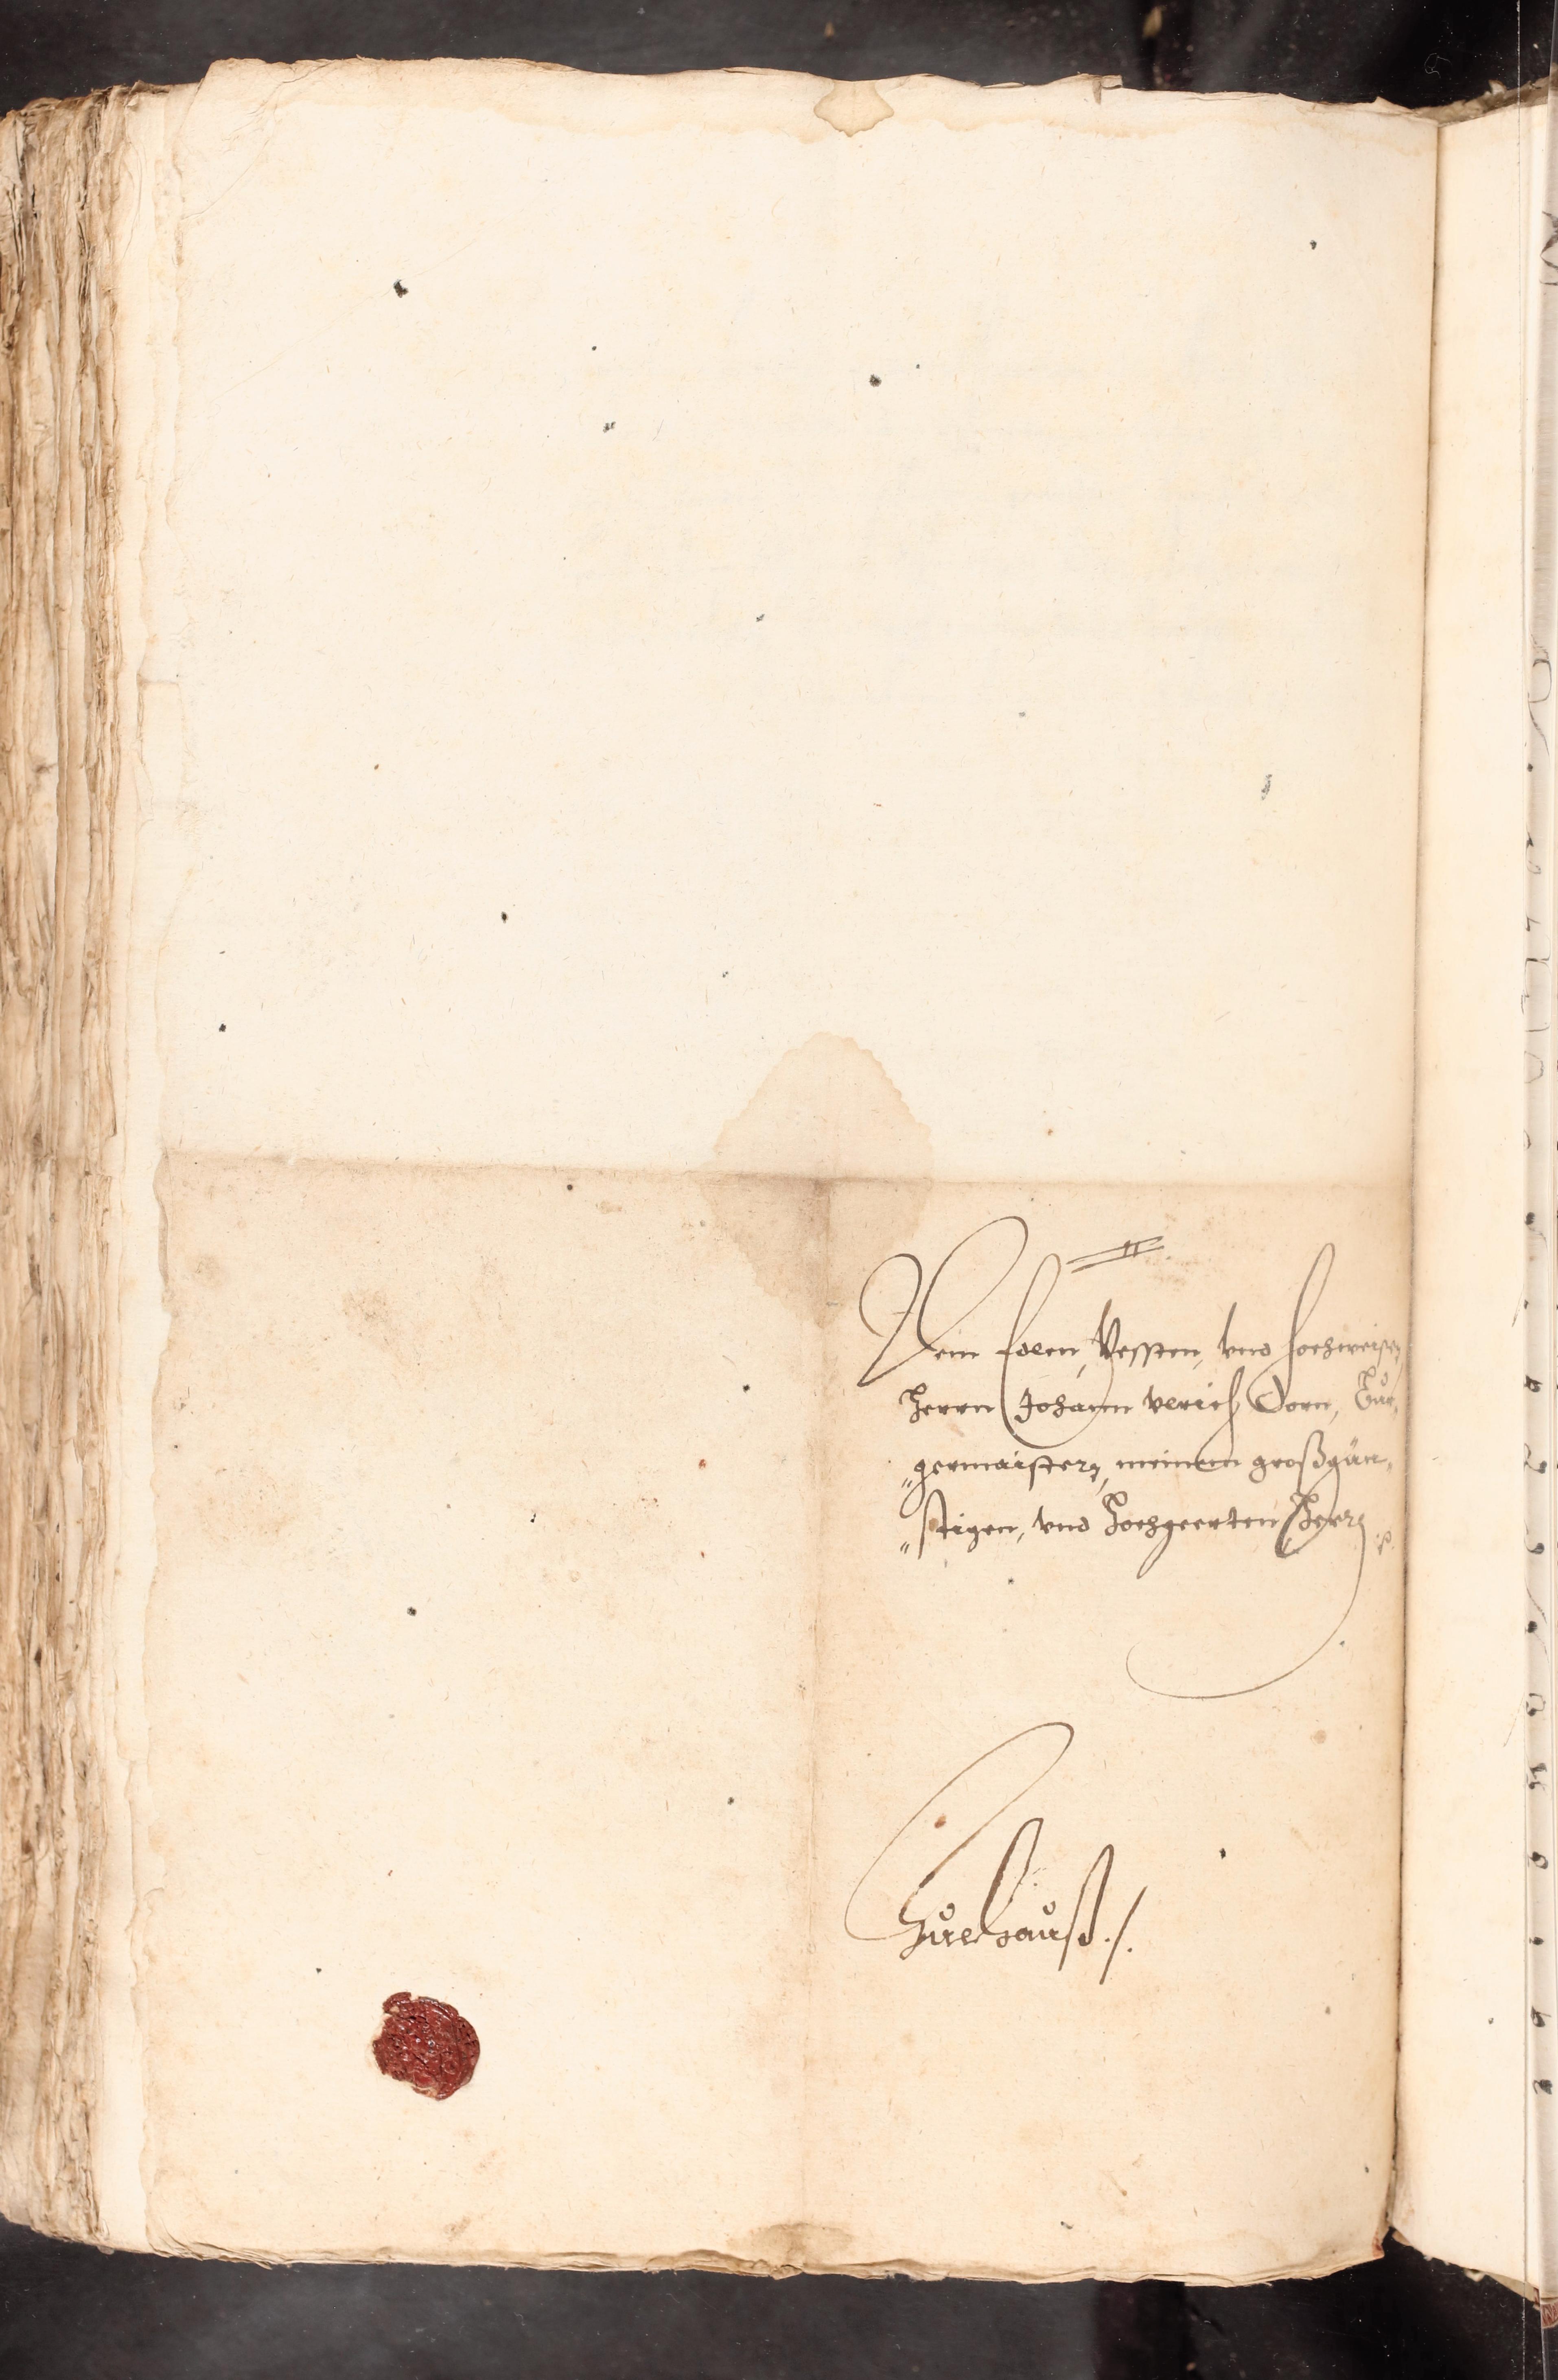 Dem Edlen, Vessten, vnd Hochweisen
Herrn Johann Vlrich Dorn, Bur„
„germaistern, meinem großgün„
„stigen, vnd Hochgeerten Herrn
Zue Hauß ./.